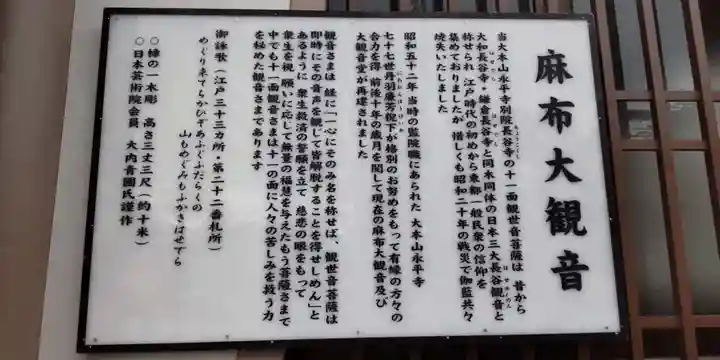 麻布大観音
当大本山永平寺別院長谷寺の十一面観世音菩薩は 昔から
大和長谷寺・鎌倉長谷寺と同木同体の日本三大長谷観音と
称せられ 江戸時代の初めから東都一般民衆の信仰を
集めておりましたが 惜しくも昭和二十年の戦災で伽藍共々
焼失いたしました
昭和五十二年 当時の監院職にあられた 大本山永平寺
七十七世丹羽廉芳猊下が格別のお努めをもって有縁の方々の
合力を得 前後十年の歳月を閲して現在の麻布大観音及び
大観音堂が再建されました
観音さまは 経に「一心にそのみ名を称せば、観世音菩薩は
即時にその音声を観じて皆解脱することを得せしめん」と
あるように 衆生救済の誓願を立て 慈悲の眼をもって
衆生を視 願いに応じて無量の福慧を与えたもう菩薩さまで
中でも十一面観音さまは十一の面に人々の苦しみを救う力
を秘めた観音さまであります
御詠歌（江戸三十三カ所・第二十二番札所）
めぐり来てちかひぞあふぐふだらくの
山もめぐみもふかきはせでら
○樟の一木彫 高さ三丈三尺（約十米）
○日本芸術院会員 大内青圃氏謹作